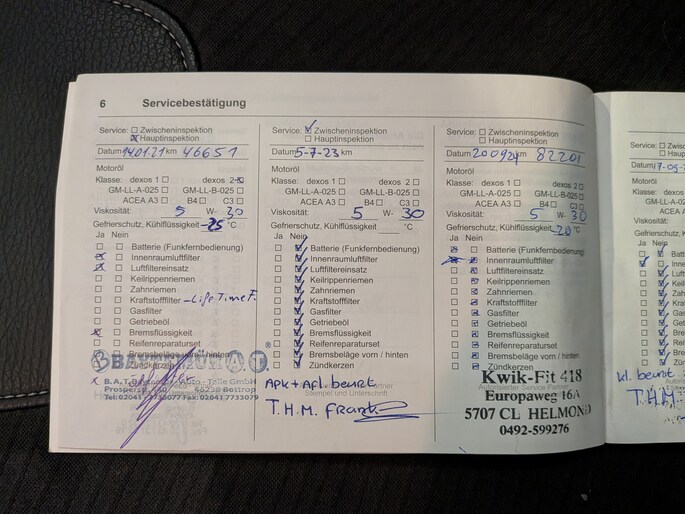 6 Servicebestätigung
Service: Zwischeninspektion
Hauptinspektion
Datum 14.01.21 km 46651
Motoröl
Klasse: dexos 1 dexos 2
GM-LL-A-025 GM-LL-B-025
ACEA A3 B4 C3
Viskosität: 5 W- 30
Gefrierschutz, Kühlflüssigkeit -25 °C
Ja Nein
Batterie (Funkfernbedienung)
Innenraumluftfilter
Luftfiltereinsatz
Keilrippenriemen
Zahnriemen
Kraftstofffilter - Life Time F.
Gasfilter
Getriebeöl
Bremsflüssigkeit
Reifenreparaturset
Bremsbeläge vorn / hinten
Zündkerzen
B.A.T.
Prosperstr. 46238 Bottrop
Tel: 02041 Fax: 02041 7733079
Service: Zwischeninspektion
Hauptinspektion
Datum 5-7-23 km
Motoröl
Klasse: dexos 1 dexos 2
GM-LL-A-025 GM-LL-B-025
ACEA A3 B4 C3
Viskosität: 5 W- 30
Gefrierschutz, Kühlflüssigkeit °C
Ja Nein
Batterie (Funkfernbedienung)
Innenraumluftfilter
Luftfiltereinsatz
Keilrippenriemen
Zahnriemen
Kraftstofffilter
Gasfilter
Getriebeöl
Bremsflüssigkeit
Reifenreparaturset
Bremsbeläge vorn / hinten
Zündkerzen
APK + Afl. beurt
Stempel und Unterschrift
T.H.M.
Service: Zwischeninspektion
Hauptinspektion
Datum 200924 km 82201
Motoröl
Klasse: dexos 1 dexos 2
GM-LL-A-025 GM-LL-B-025
ACEA A3 B4 C3
Viskosität: 5 W- 30
Gefrierschutz, Kühlflüssigkeit -20 °C
Ja Nein
Batterie (Funkfernbedienung)
Innenraumluftfilter
Luftfiltereinsatz
Keilrippenriemen
Zahnriemen
Kraftstofffilter
Gasfilter
Getriebeöl
Bremsflüssigkeit
Reifenreparaturset
Bremsbeläge vorn / hinten
Zündkerzen
Kwik-Fit 418
Europaweg 16A
5707 CL HELMOND
0492-599276
Service:
Datum
Motoröl
Klasse:
Viskosität:
Gefrierschutz
Ja Nein
Batt
Inne
Luft
Keil
Zah
Kra
Gas
Get
Bre
Rei
Bre
Zün
kl. beurt
T.H.M.